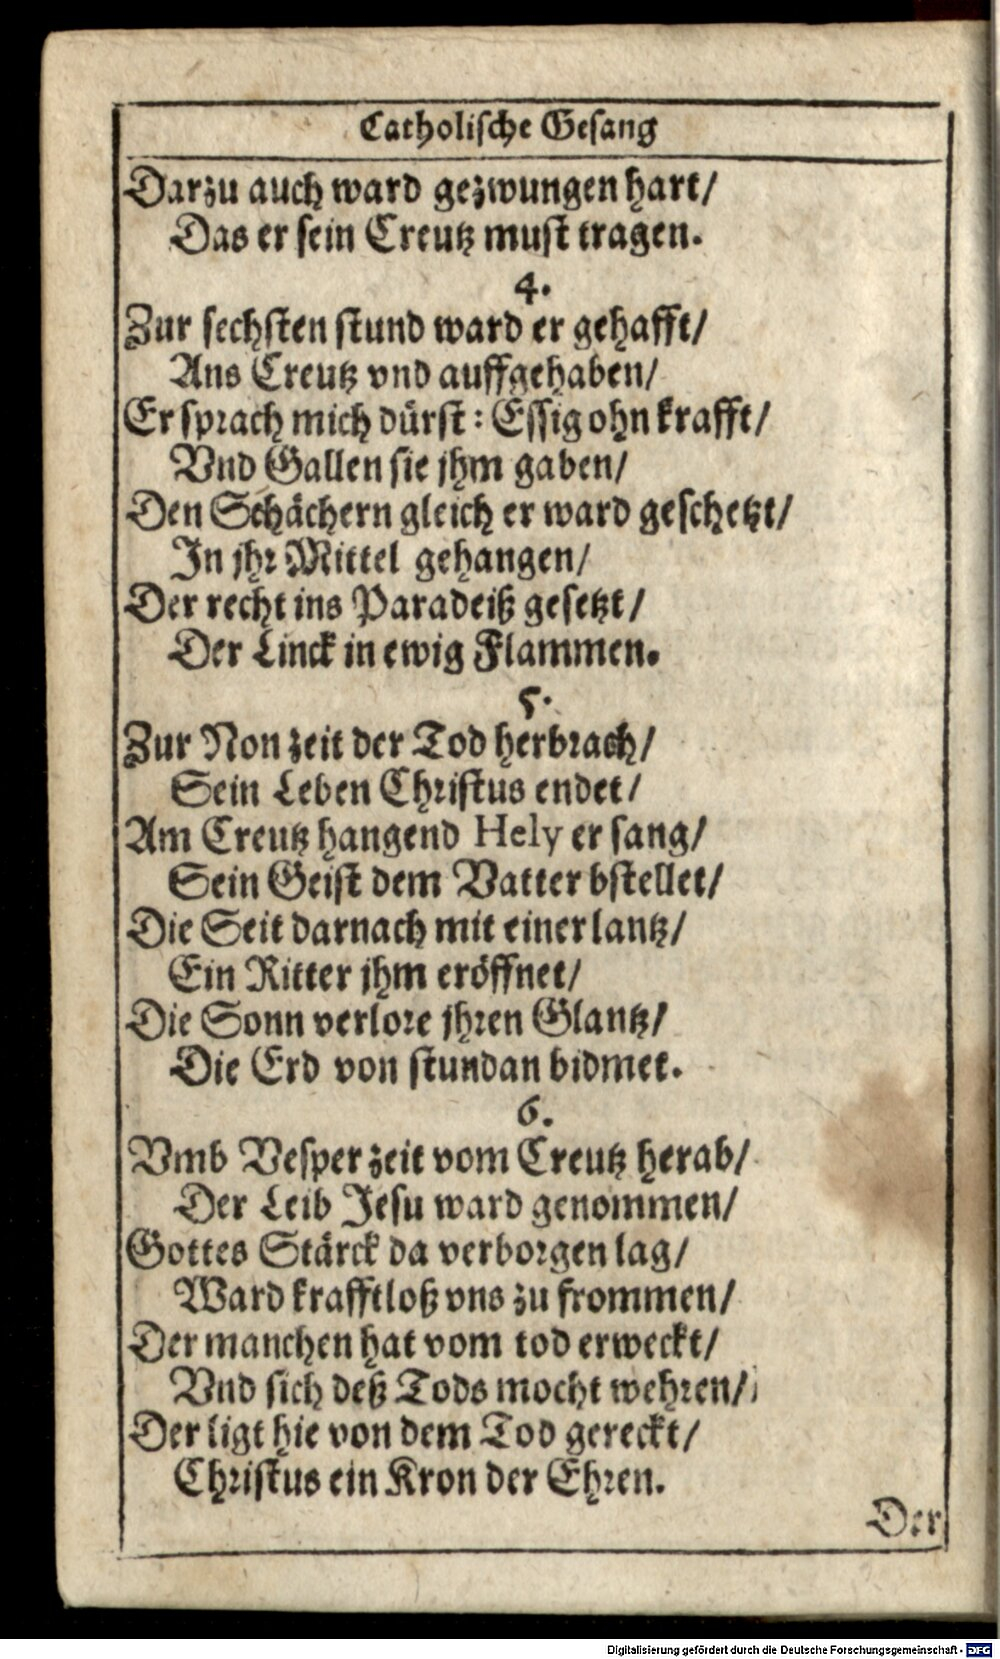 Catholische Gesang
Darzu auch ward gezwungen hart/
Das er sein Creutz must tragen.
4.
Zur sechsten stund ward er gehafft/
Ans Creutz vnd auffgehaben/
Er sprach mich dürst: Essig ohn krafft/
Vnd Gallen sie jhm gaben/
Den Schächern gleich er ward geschetzt/
In jhr Mittel gehangen/
Der recht ins Paradeiß gesetzt/
Der Linck in ewig Flammen.
5.
Zur Non zeit der Tod herbrach/
Sein Leben Christus endet/
Am Creutz hangend Hely er sang/
Sein Geist dem Vatter bstellet/
Die Seit darnach mit einer lantz/
Ein Ritter jhm eröffnet/
Die Sonn verlore jhren Glantz/
Die Erd von stundan bidmet.
6.
Vmb Vesper zeit vom Creutz herab/
Der Leib Jesu ward genommen/
Gottes Stärck da verborgen lag/
Ward krafftloß vns zu frommen/
Der manchen hat vom tod erweckt/
Vnd sich deß Tods mocht wehren/
Der ligt hie von dem Tod gereckt/
Christus ein Kron der Ehren.
Der
Digitalisierung gefördert durch die Deutsche Forschungsgemeinschaft - DFG